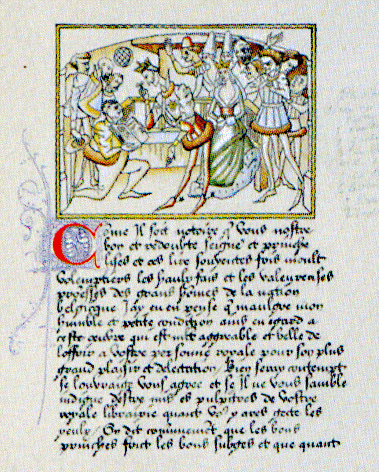 Côme Il soit notoire q̃ vous nostre
bon et redoubte et prinche
lises et oes lire souventes fois moult
volemptiers les haulx fais et les
proesses des grans hômes de la nation
belgicque Jay eu en pense q̃ maulgre mon
humble et petite condition en a
ceste œuvre qui est mlt aggreable et belle de
loffrir a vostre personne royale pour son plus
grand plaisir et delectation / Bien seray contempt
se louvraige vous agree et se Il ne vous samble
indigne destre mis es pulpitres de vostre
royale librairie quant y ares gecte les
yeulx / On dit communement que les bons
prinches font les bons subges et que quant